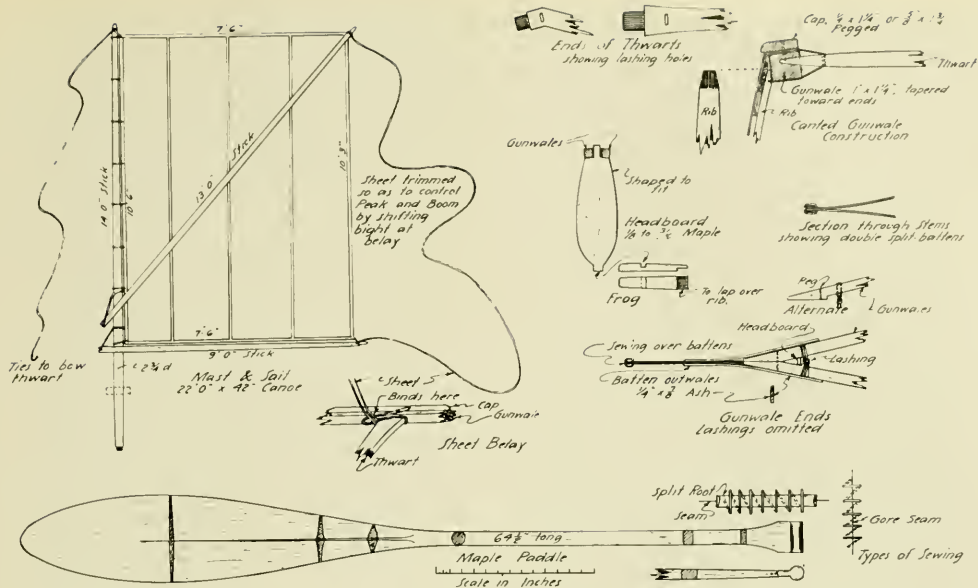 7'6"
14'0" Stick
10'6"
13'0" Stick
10'8"
Sheet trimmed
so as to control
Peak and Boom
by shifting
bight at
belay
7'6"
9'0" Stick
Ties to bow
thwart
2¾ d
Mast & Sail
22'0" x 42" Canoe
Sheet
Binds here
Cap
Gunwale
Thwart
Sheet Belay
Ends of Thwarts
showing lashing holes
Cap,
Pegged
Thwart
Gunwale 1" x 1¼", tapered
toward ends
Rib
Rib
Canted Gunwale
Construction
Gunwales
Shaped to
fit
Headboard
Maple
Frog
To lap over
rib.
Section through Stems
showing double split battens
Peg
Alternate
Gunwales
Headboard
Sewing over battens
Lashing
Batten outwales
Ash
Gunwale Ends
Lashings omitted
Split Root
Seam
Gore Seam
Types of Sewing
64½" long
Maple Paddle
Scale in Inches